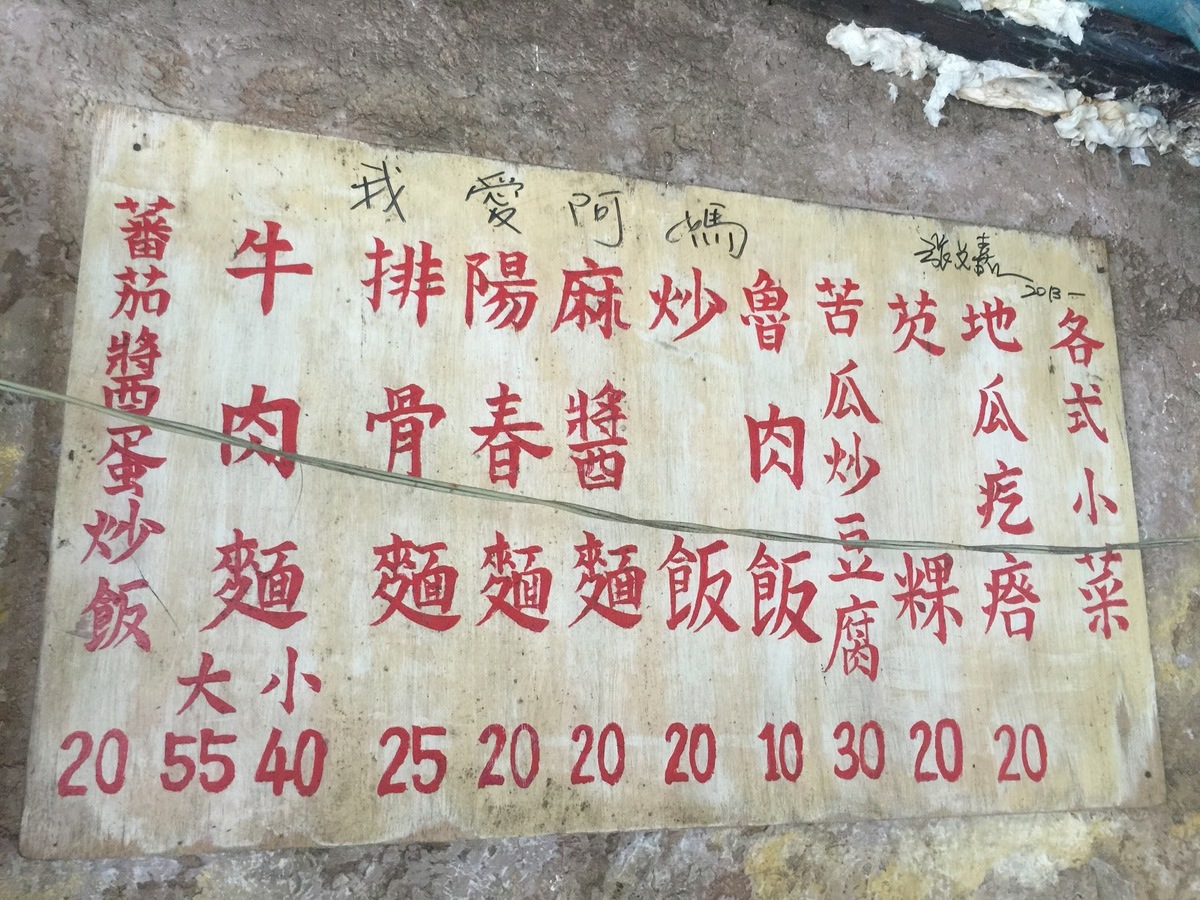 我愛阿媽
2013
各式小菜
地瓜疙瘩 20
芡粿 20
苦瓜炒豆腐 30
魯肉飯 10
炒飯 20
麻醬麵 20
陽春麵 20
排骨麵 25
牛肉麵 小 40 大 55
蕃茄醬蛋炒飯 20